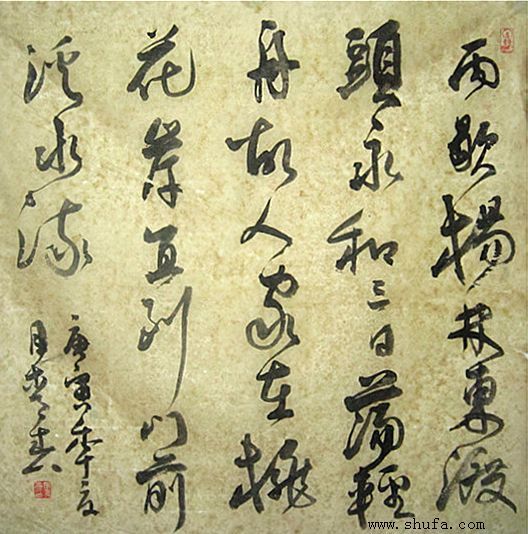 雨歇楊林東渡
頭永和三日蕩輕
舟故人家在桃
花岸直到門前
溪水流
庚寅年十二
月
www.shufa.com